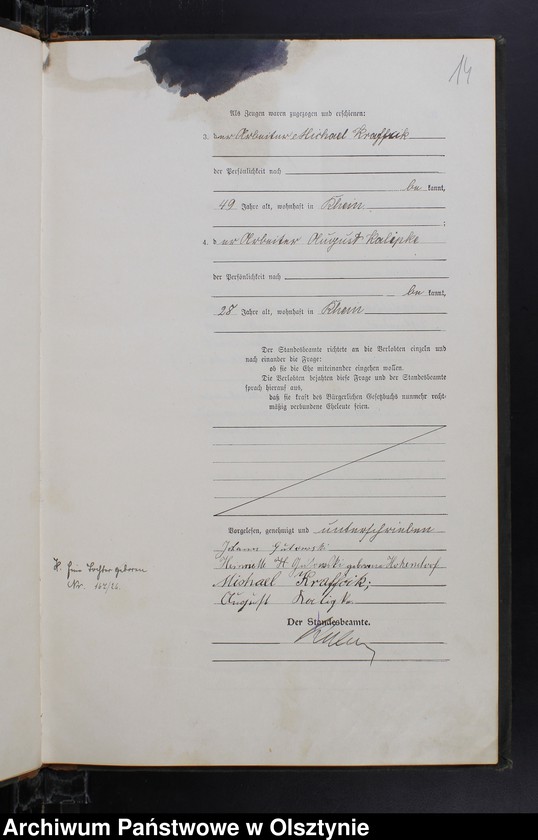 14
Als Zeugen waren zugezogen und erschienen:
3. der Arbeiter Michael Kraffzik
der Persönlichkeit nach
be kannt,
49 Jahre alt, wohnhaft in Rhein
;
4. der Arbeiter August Kalipke
der Persönlichkeit nach
be kannt,
28 Jahre alt, wohnhaft in Rhein
Der Standesbeamte richtete an die Verlobten einzeln und
nach einander die Frage:
ob sie die Ehe miteinander eingehen wollen.
Die Verlobten bejahten diese Frage und der Standesbeamte
sprach hierauf aus,
daß sie kraft des Bürgerlichen Gesetzbuchs nunmehr recht-
mäßig verbundene Eheleute seien.
Vorgelesen, genehmigt und unterschrieben
Johann Gutowski
H. Eine Tochter geboren
Henriette Gutowski geborene
Nr.
Michael Kraffcik;
August
Der Standesbeamte.
Archiwum Państwowe w Olsztynie